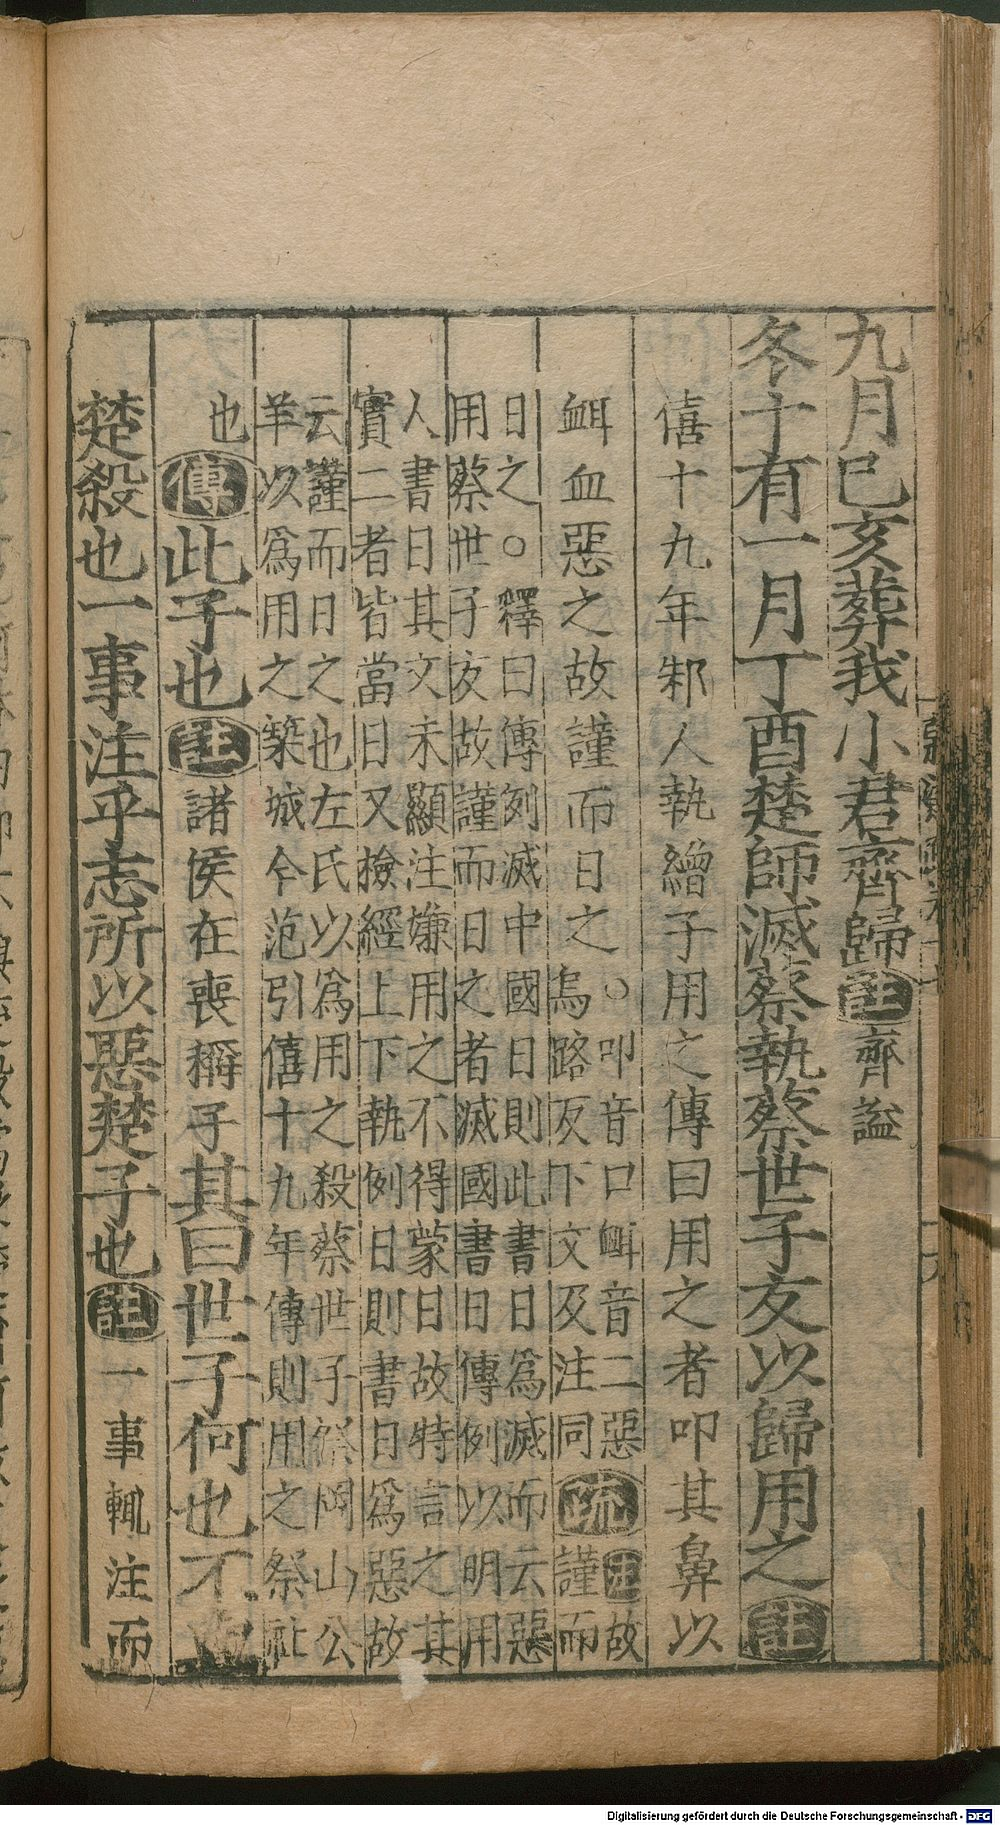 九月己亥葬我小君齊歸註齊謚
冬十有一月丁酉楚師滅蔡執蔡世子友以歸用之註
僖十九年邾人執繒子用之傳曰用之者叩其鼻以
衈血惡之故謹而日之○叩音口衈音二惡
烏路反下文及注同疏注故
謹而
日之○釋曰傳例滅中國日則此書日為滅而云惡
用蔡世子友故謹而日之者滅國書日傳例以明用
人書日其文未顯注嫌用之不得蒙日故特言之其
實二者皆當日又撿經上下執例日則書日為惡故
云謹而日之也左氏以為用之殺蔡世子祭岡山公
羊以為用之築城今范引僖十九年傳則用之祭社
也傳此子也註諸侯在喪稱子其曰世子何也不
楚殺也一事注乎志所以惡楚子也註一事輒注而
Digitalisierung gefördert durch die Deutsche Forschungsgemeinschaft - DFG